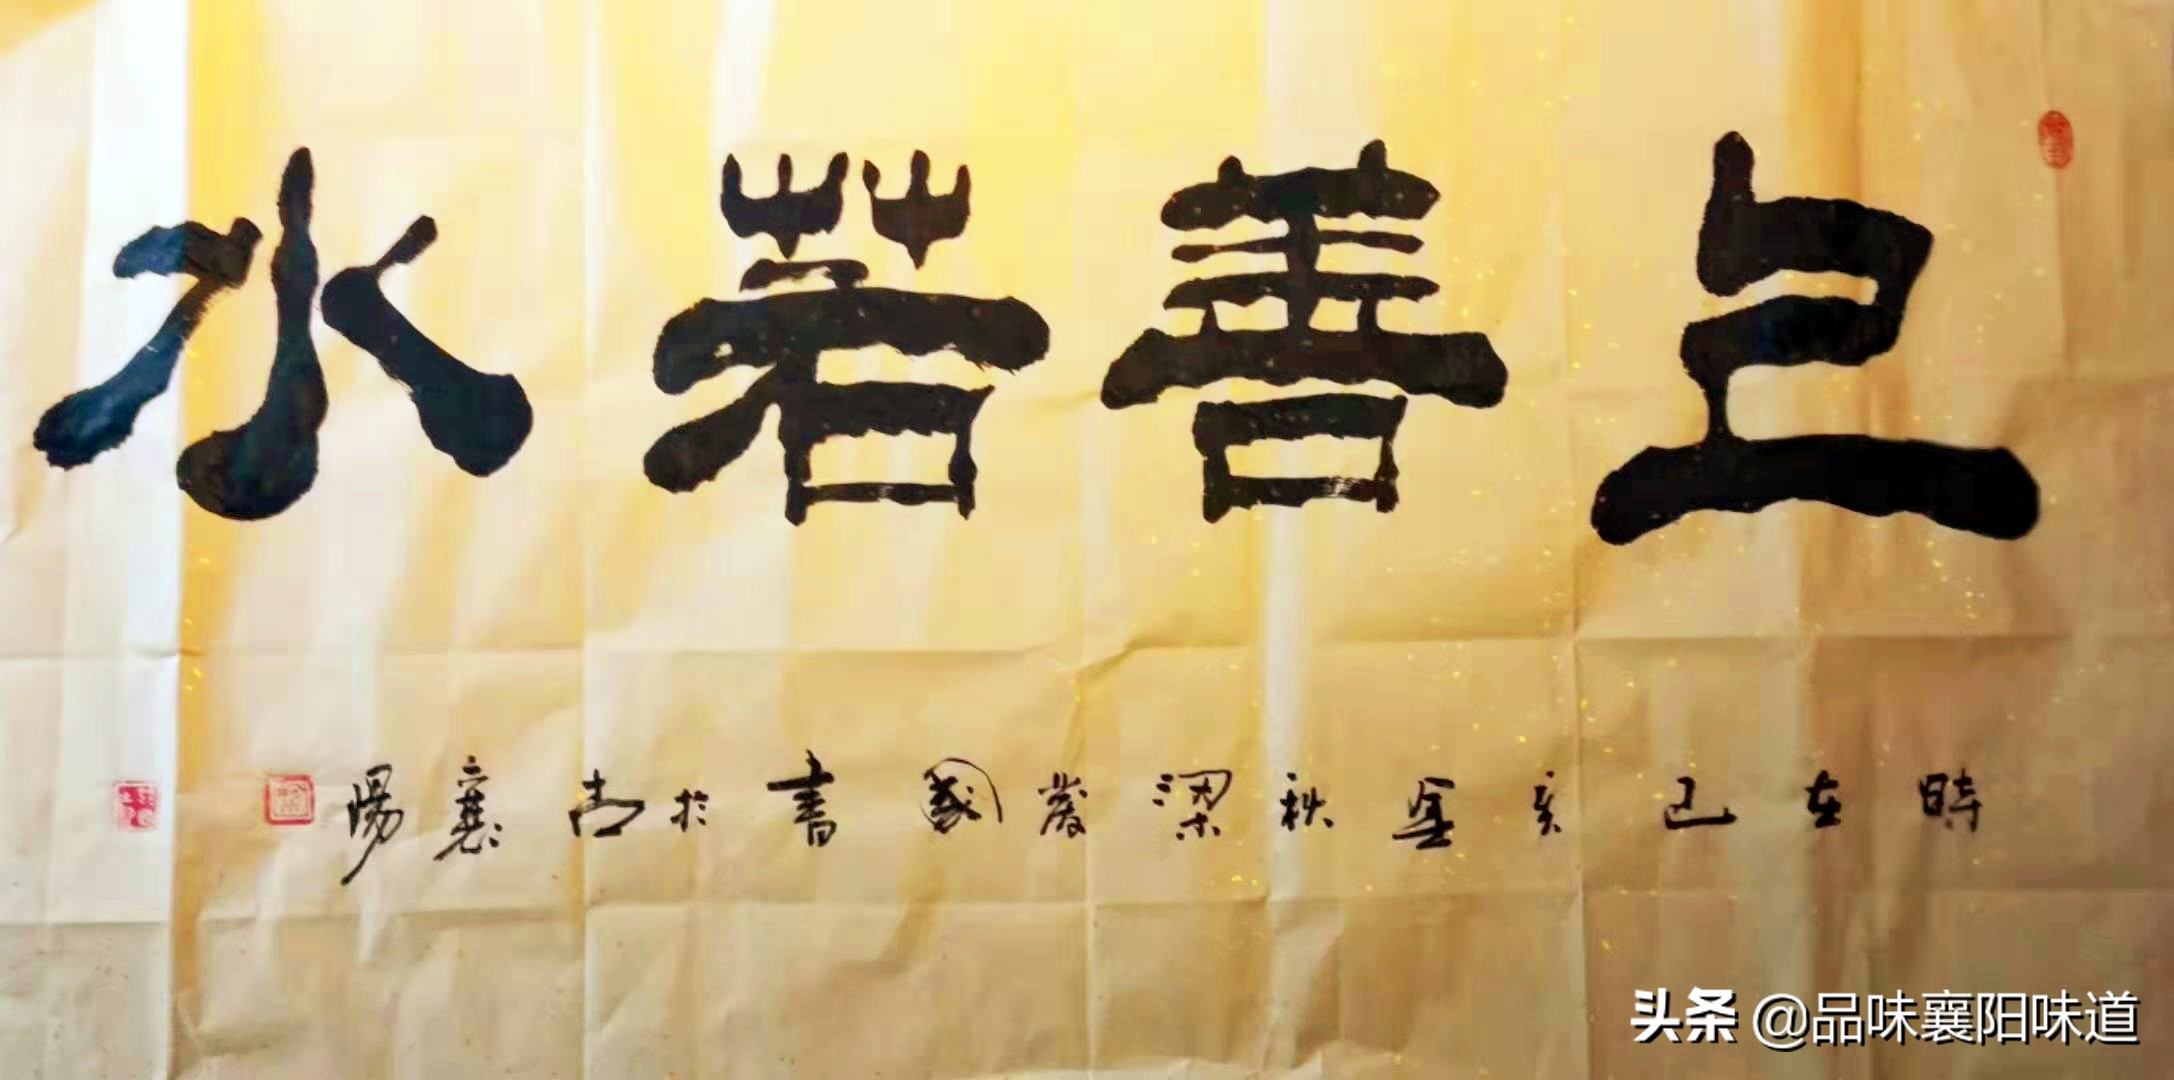 上善若水
時在己亥金秋梁發國書於古襄陽
头条 @品味襄阳味道